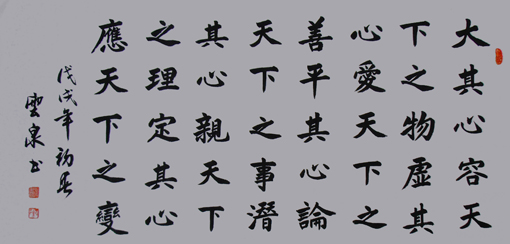 大其心容天
下之物虛其
心愛天下之
善平其心論
天下之事潛
其心親天下
之理定其心
應天下之變
戊戌年初春
雲泉书